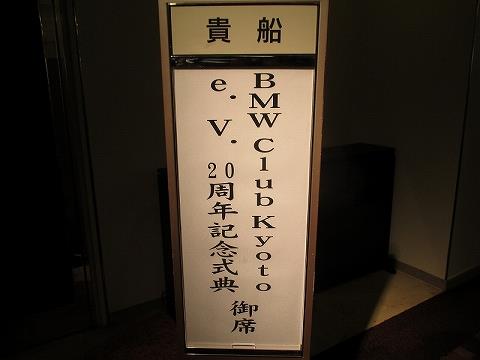 貴船
BMW Club Kyoto
e. V. 20周年記念式典
御席